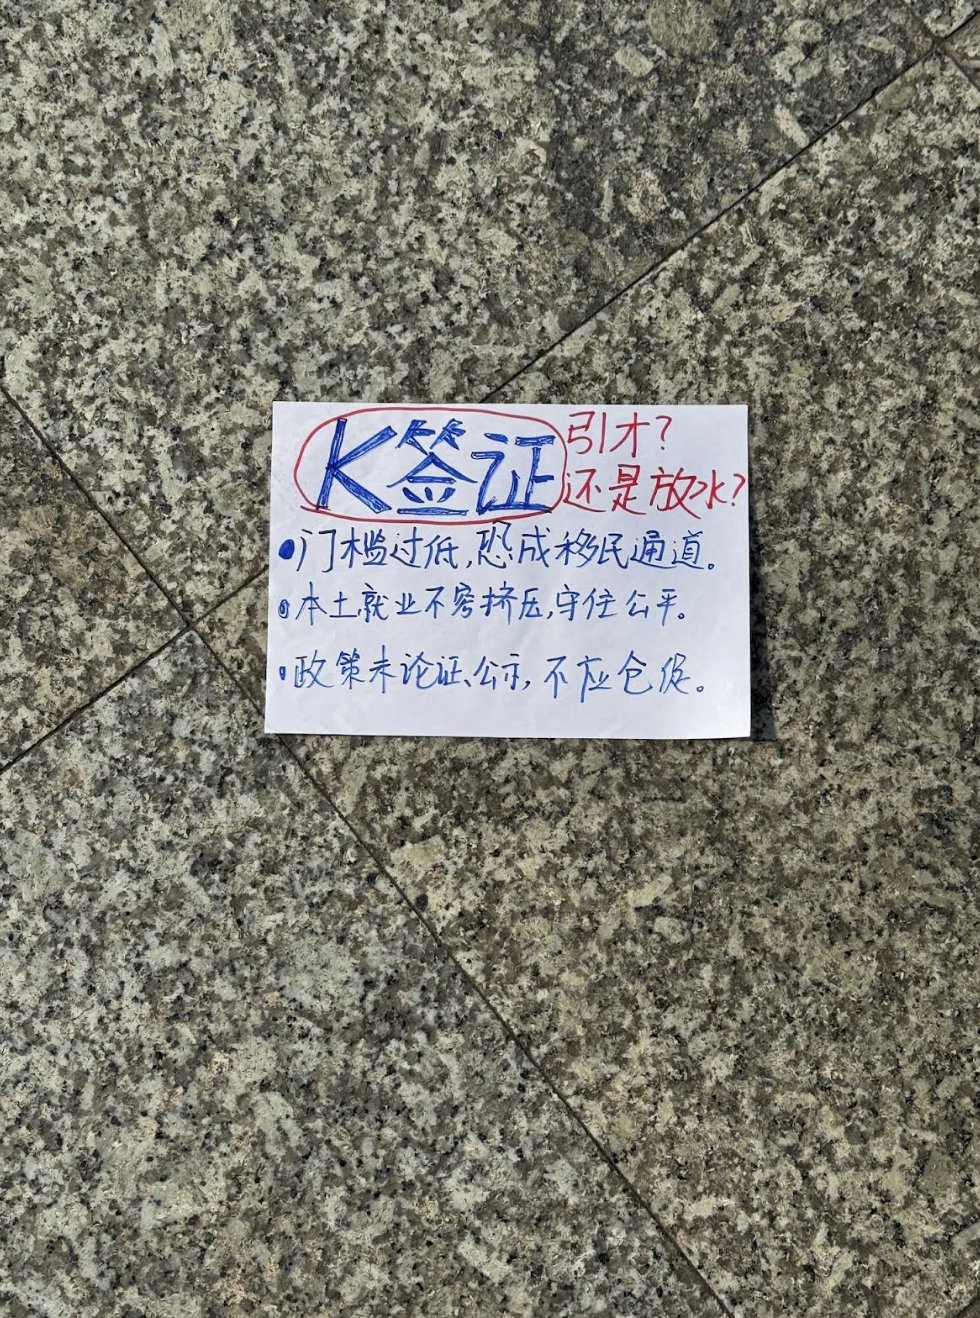 K签证
引才?
还是放水?
●门槛过低,恐成移民通道。
●本土就业不容挤压,守住公平。
●政策未论证、公示,不应仓促。